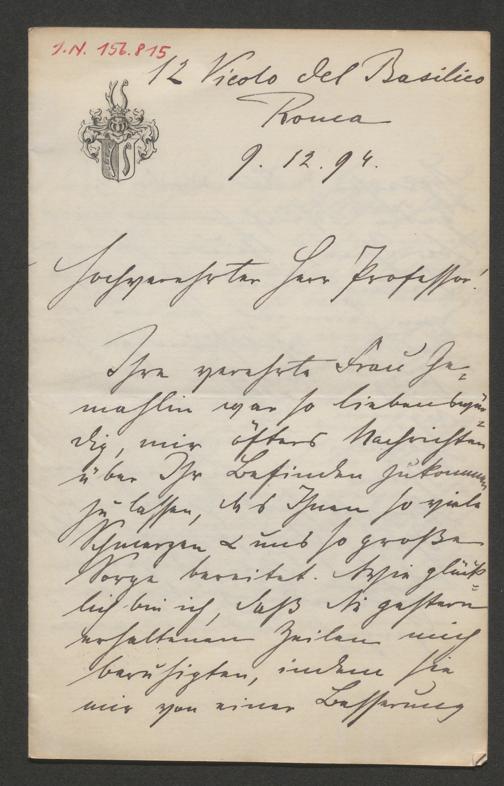 I.N. 156.815
12 Vicolo del Basilico
Roma
9. 12. 94.
Hochverehrter Herr Professor!
Ihre verehrte Frau Ge-
mahlin war so liebenswür-
dig, mir öfters Nachrichten
über Ihr Befinden zukommen
zu lassen, das Ihnen so viele
Schmerzen & uns so große
Sorge bereitet. Wie glück-
lich bin ich, daß die gestern
erhaltenen Zeilen mich
beruhigten, indem sie
mir von einer Besserung